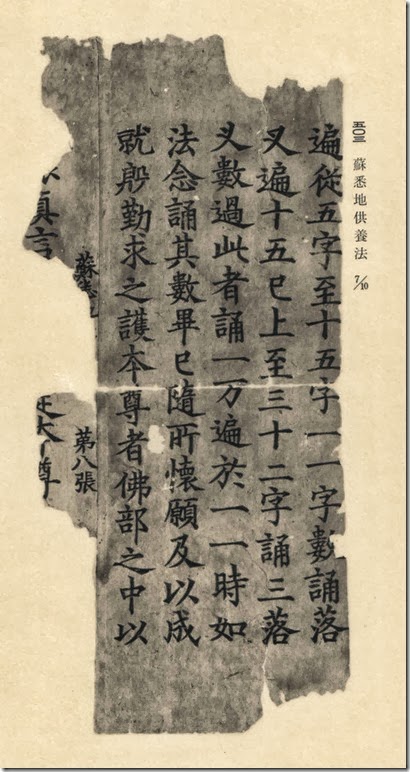 五〇三　蘇悉地供養法　7/10
遍從五字至十五字一一字數誦落
叉遍十五已上至三十二字誦三落
叉數過此者誦一万遍於一一時如
法念誦其數畢已隨所懷願及以成
就殷勤求之護本尊者佛部之中以
蘇悉　第八張
真言　大